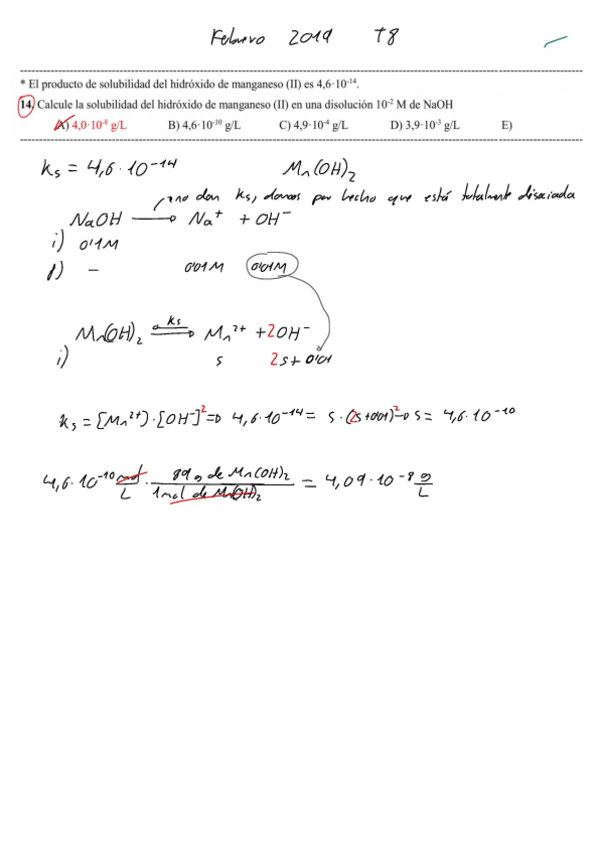 Febrero 2019 T8
* El producto de solubilidad del hidróxido de manganeso (II) es 4,6·10⁻¹⁴.
14. Calcule la solubilidad del hidróxido de manganeso (II) en una disolución 10⁻² M de NaOH
A) 4,0·10⁻⁸ g/L B) 4,6·10⁻¹⁰ g/L C) 4,9·10⁻⁴ g/L D) 3,9·10⁻³ g/L E)
Ks = 4,6·10⁻¹⁴ Mn(OH)₂
no dan Ks, damos por hecho que está totalmente disociada
NaOH → Na⁺ + OH⁻
i) 0'1M
f) - 0'01M 0'01M
Mn(OH)₂ ⇌ Ks Mn²⁺ + 2OH⁻
i) s 2s + 0'01
Ks = [Mn²⁺]·[OH⁻]² ⇒ 4,6·10⁻¹⁴ = s·(2s+0'01)² → s = 4,6·10⁻¹⁰
4,6·10⁻¹⁰ mol/L · 89 g de Mn(OH)₂ / 1 mol de Mn(OH)₂ = 4,09·10⁻⁸ g/L